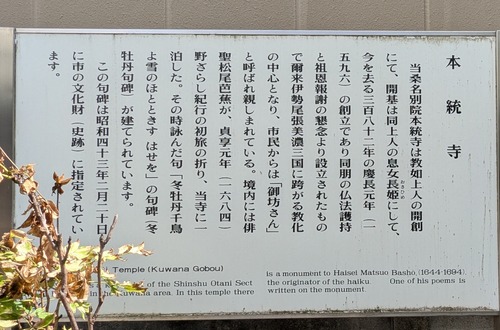 本統寺
当桑名別院本統寺は教如上人の開創
にて、開基は同上人の息女長姫にして、
おさひめ
今を去る三百八十二年の慶長元年（一
五九六）の創立であり同朋の仏法護持
と祖恩報謝の懇念より設立されたもの
で爾来伊勢尾張美濃三国に跨がる教化
の中心となり、市民からは「御坊さん」
と呼ばれ親しまれている。境内には俳
聖松尾芭蕉が、貞享元年（一六八四）
野ざらし紀行の初旅の折り、当寺に一
泊した。その時詠んだ句「冬牡丹千鳥
よ雪のほとときす はせを」の句碑（冬
牡丹句碑）が建てられています。
この句碑は昭和四十三年二月二十日
に市の文化財（史跡）に指定されてい
ます。
Temple (Kuwana Gobou)
of the Shinshu Otani Sect
in the Kuwana area. In this temple there
is a monument to Haisei Matsuo Basho, (1644-1694),
the originator of the haiku. One of his poems is
written on the monument.